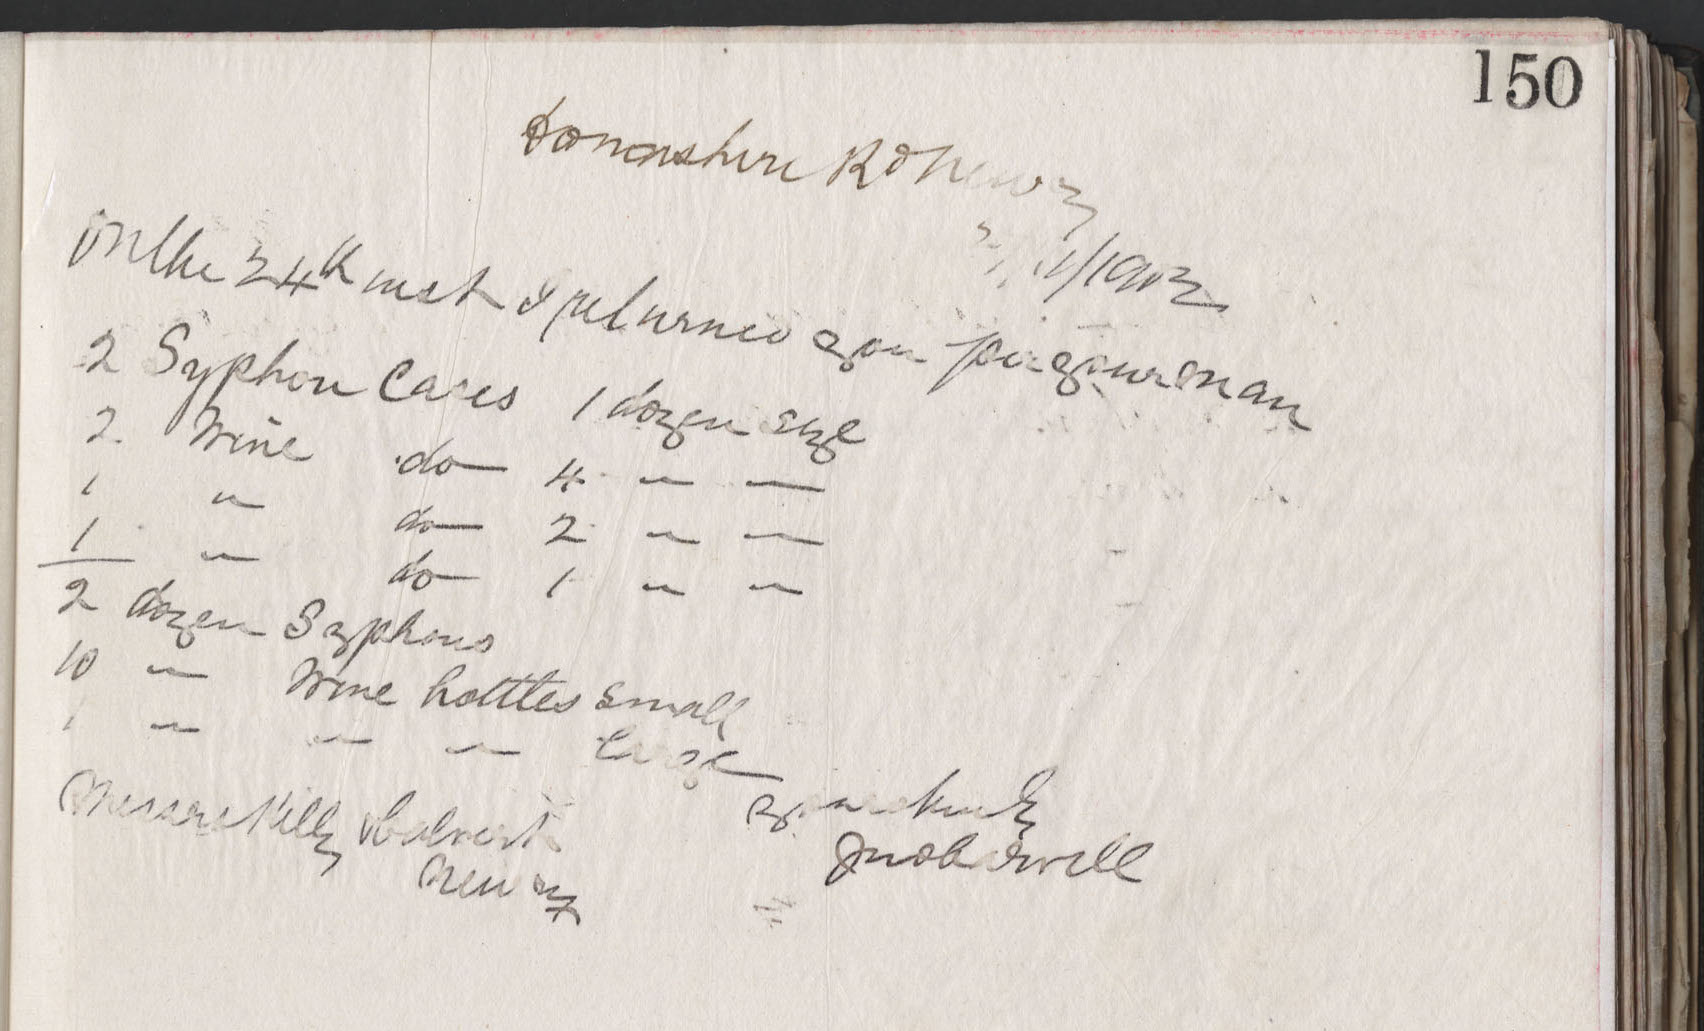 150
Downshire Rd Newry
11/1902
On the 24th inst I returned you per your man
2 Syphon Cases 1 dozen size
2 Wine do 4 " "
1 " do 2 " "
1 " do 1 " "
2 dozen Syphons
10 " Wine bottles small
1 " " " large
yours truly
Messrs Kelly
Newry